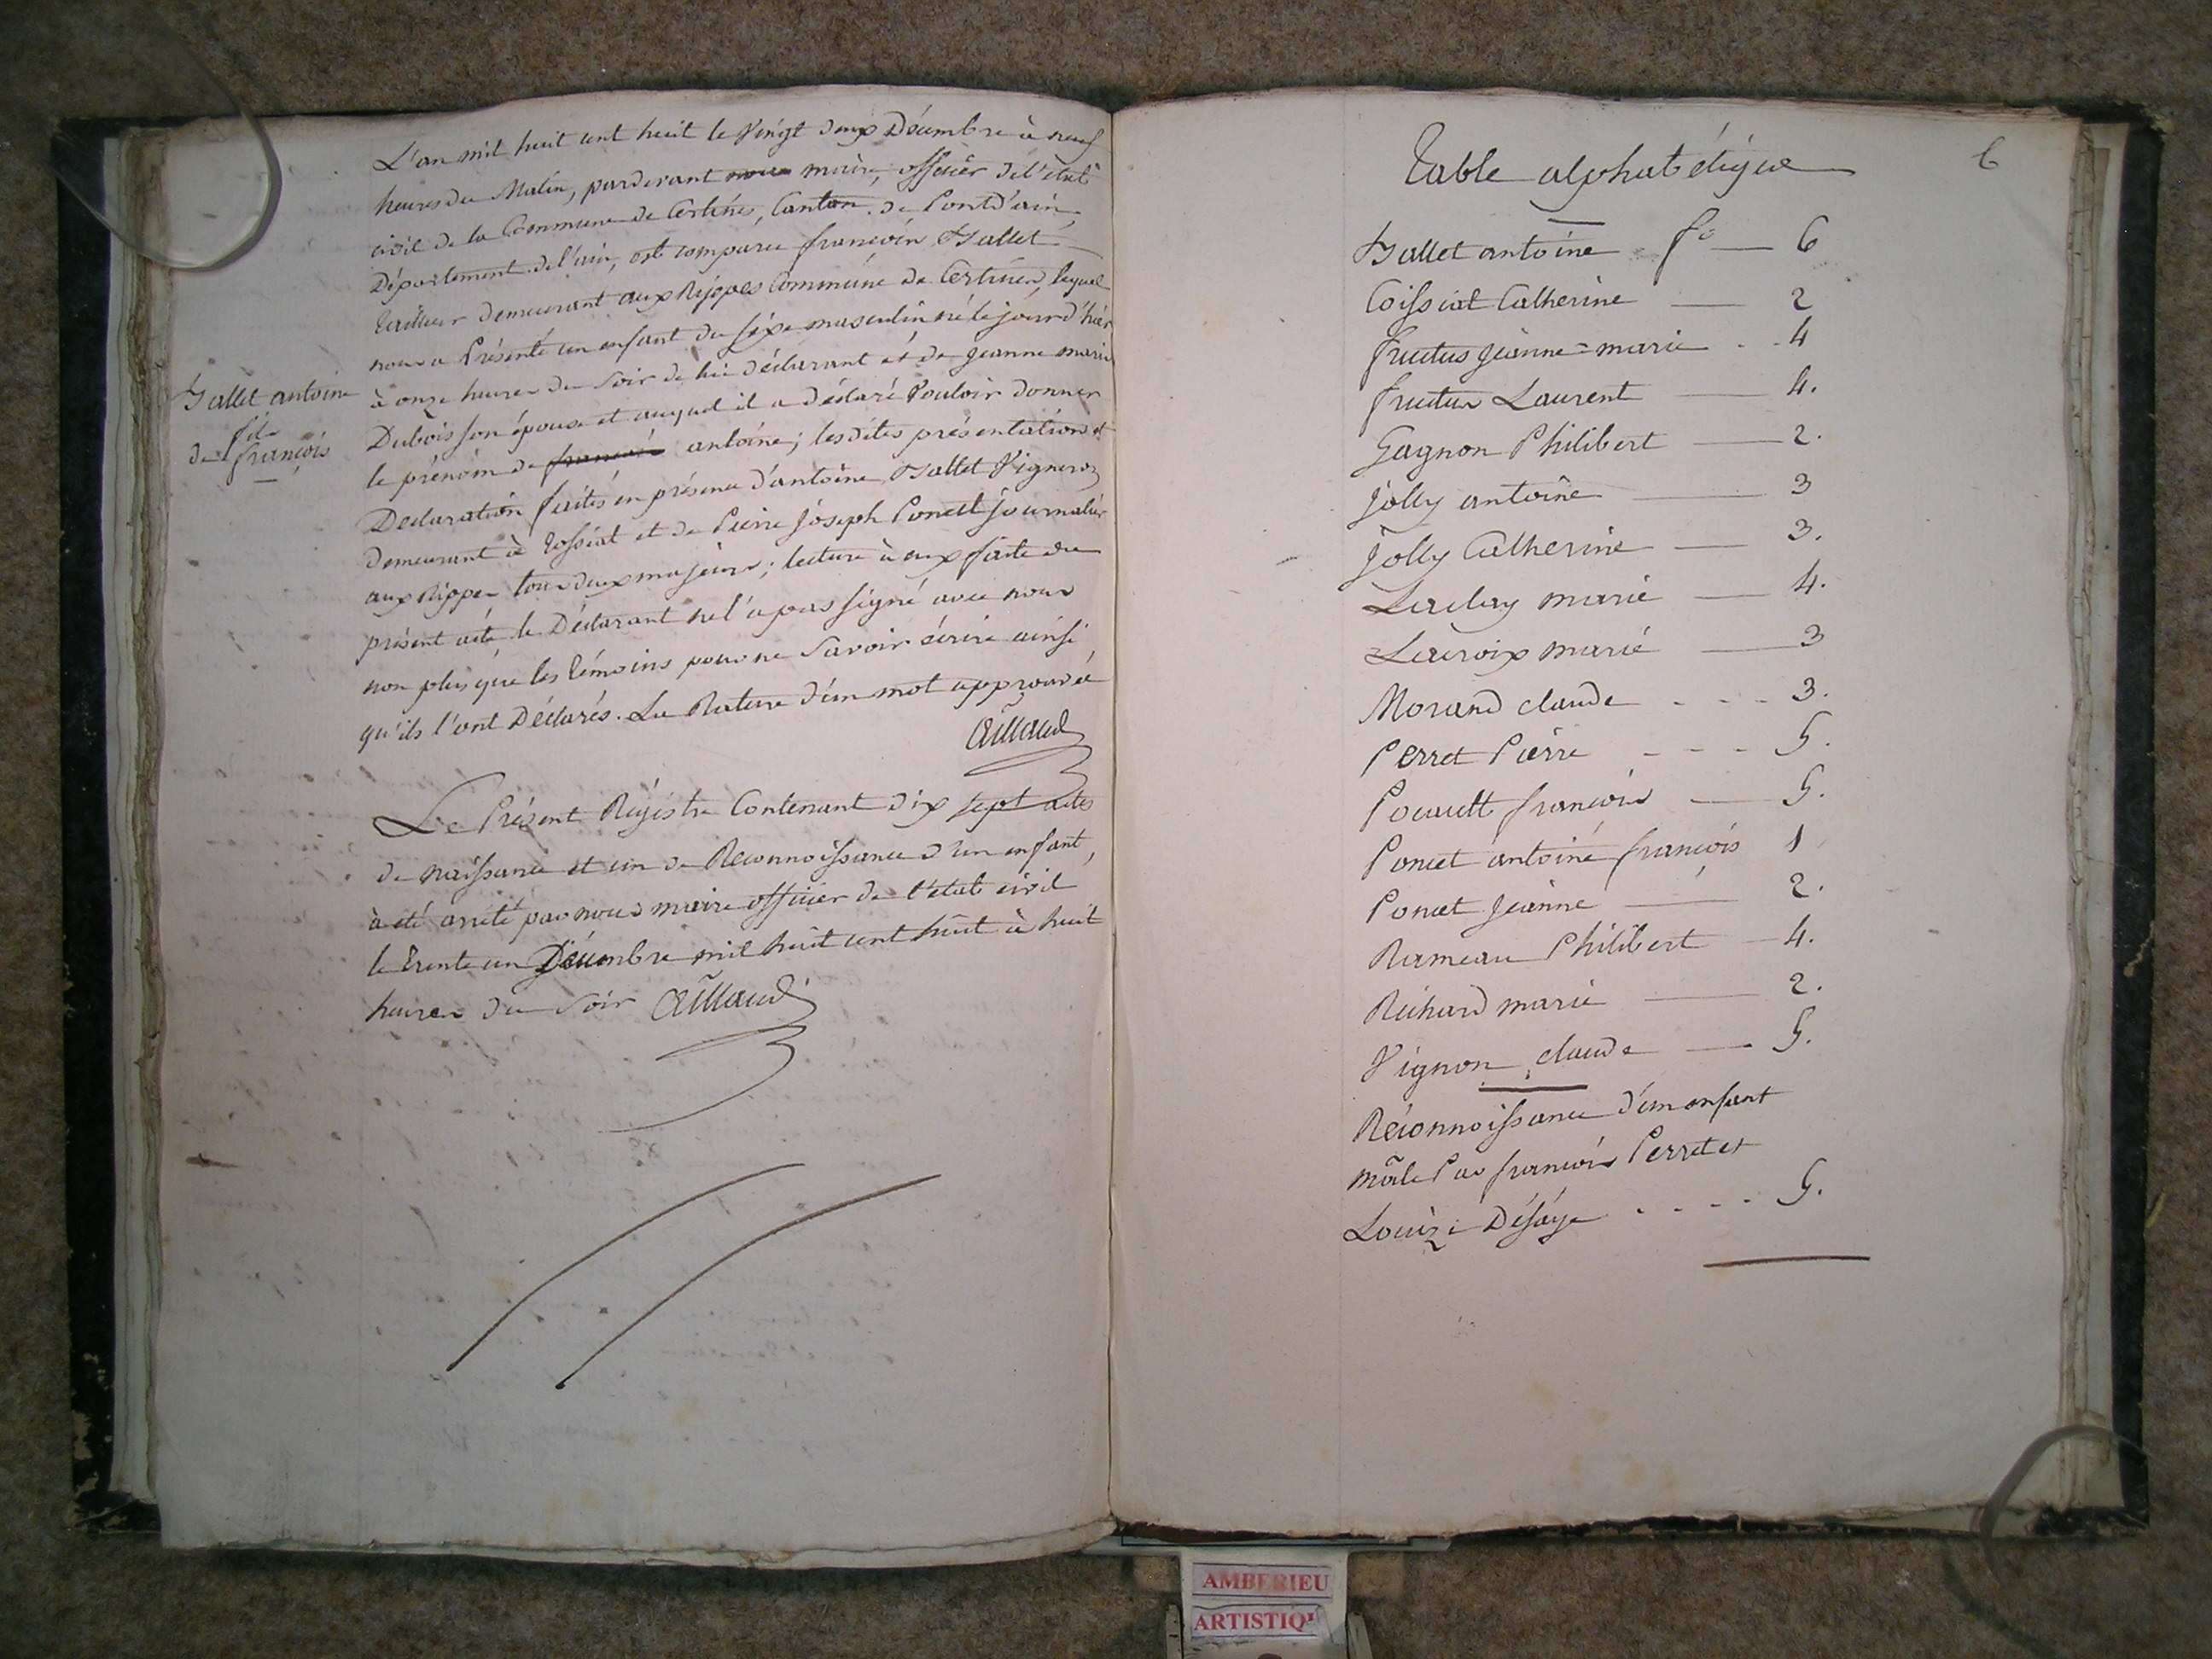 L'an mil huit cent huit le Vingt deux Décembre à neuf
heures du Matin, pardevant nous maire, officier de l'état
civil de la Commune de Certines, Canton de Pontd'ain,
Département de l'ain, est comparu françois Hallet
tailleur demeurant aux Rippes Commune de Certines, lequel
nous a Présenté un enfant du sexe masculin né le jour d'hier
à onze heures du Soir de lui déclarant et de jeanne marie
Dubois son épouse et auquel il a déclaré Vouloir donner
le prénom de françois antoine; lesdites présentation et
Declaration faites en présence d'antoine Hallet Vigneron
demeurant à tossiat et de Pierre joseph Poncet journalier
aux Rippes tous deux majeurs; lecture à eux faite du
présent acte, le Déclarant ne l'a pas signé avec nous
non plus que les témoins pour ne Savoir écrire ainsi
qu'ils l'ont Déclarés. La Rature d'un mot approuvée
Aillaud
Hallet antoine
fils
de françois
Le Présent Régistre Contenant dix sept actes
de naissance et un de Reconnoissance d'un enfant,
à été arrêté par nous maire officier de l'etat civil
le trente un Décembre mil huit cent huit à huit
heures du Soir Aillaud
6
Table alphabétique
Hallet antoine f° 6
Coissiat Catherine 2
fructus jeanne=marie 4
fructus Laurent 4.
Gagnon Philibert 2.
jolly antoine 3
jolly Catherine 3.
marie 4.
Lacroix marie 3
Morand claude 3.
Perret Pierre 5.
françois 5.
Poncet antoine françois 1
Poncet jeanne 2.
Rameau Philibert 4.
Richard marie 2.
Vignon claude 5.
Réconnoissance d'un enfant
mâle Par françois Perret et
Louize Désaye 5.
AMBERIEU
ARTISTIQ